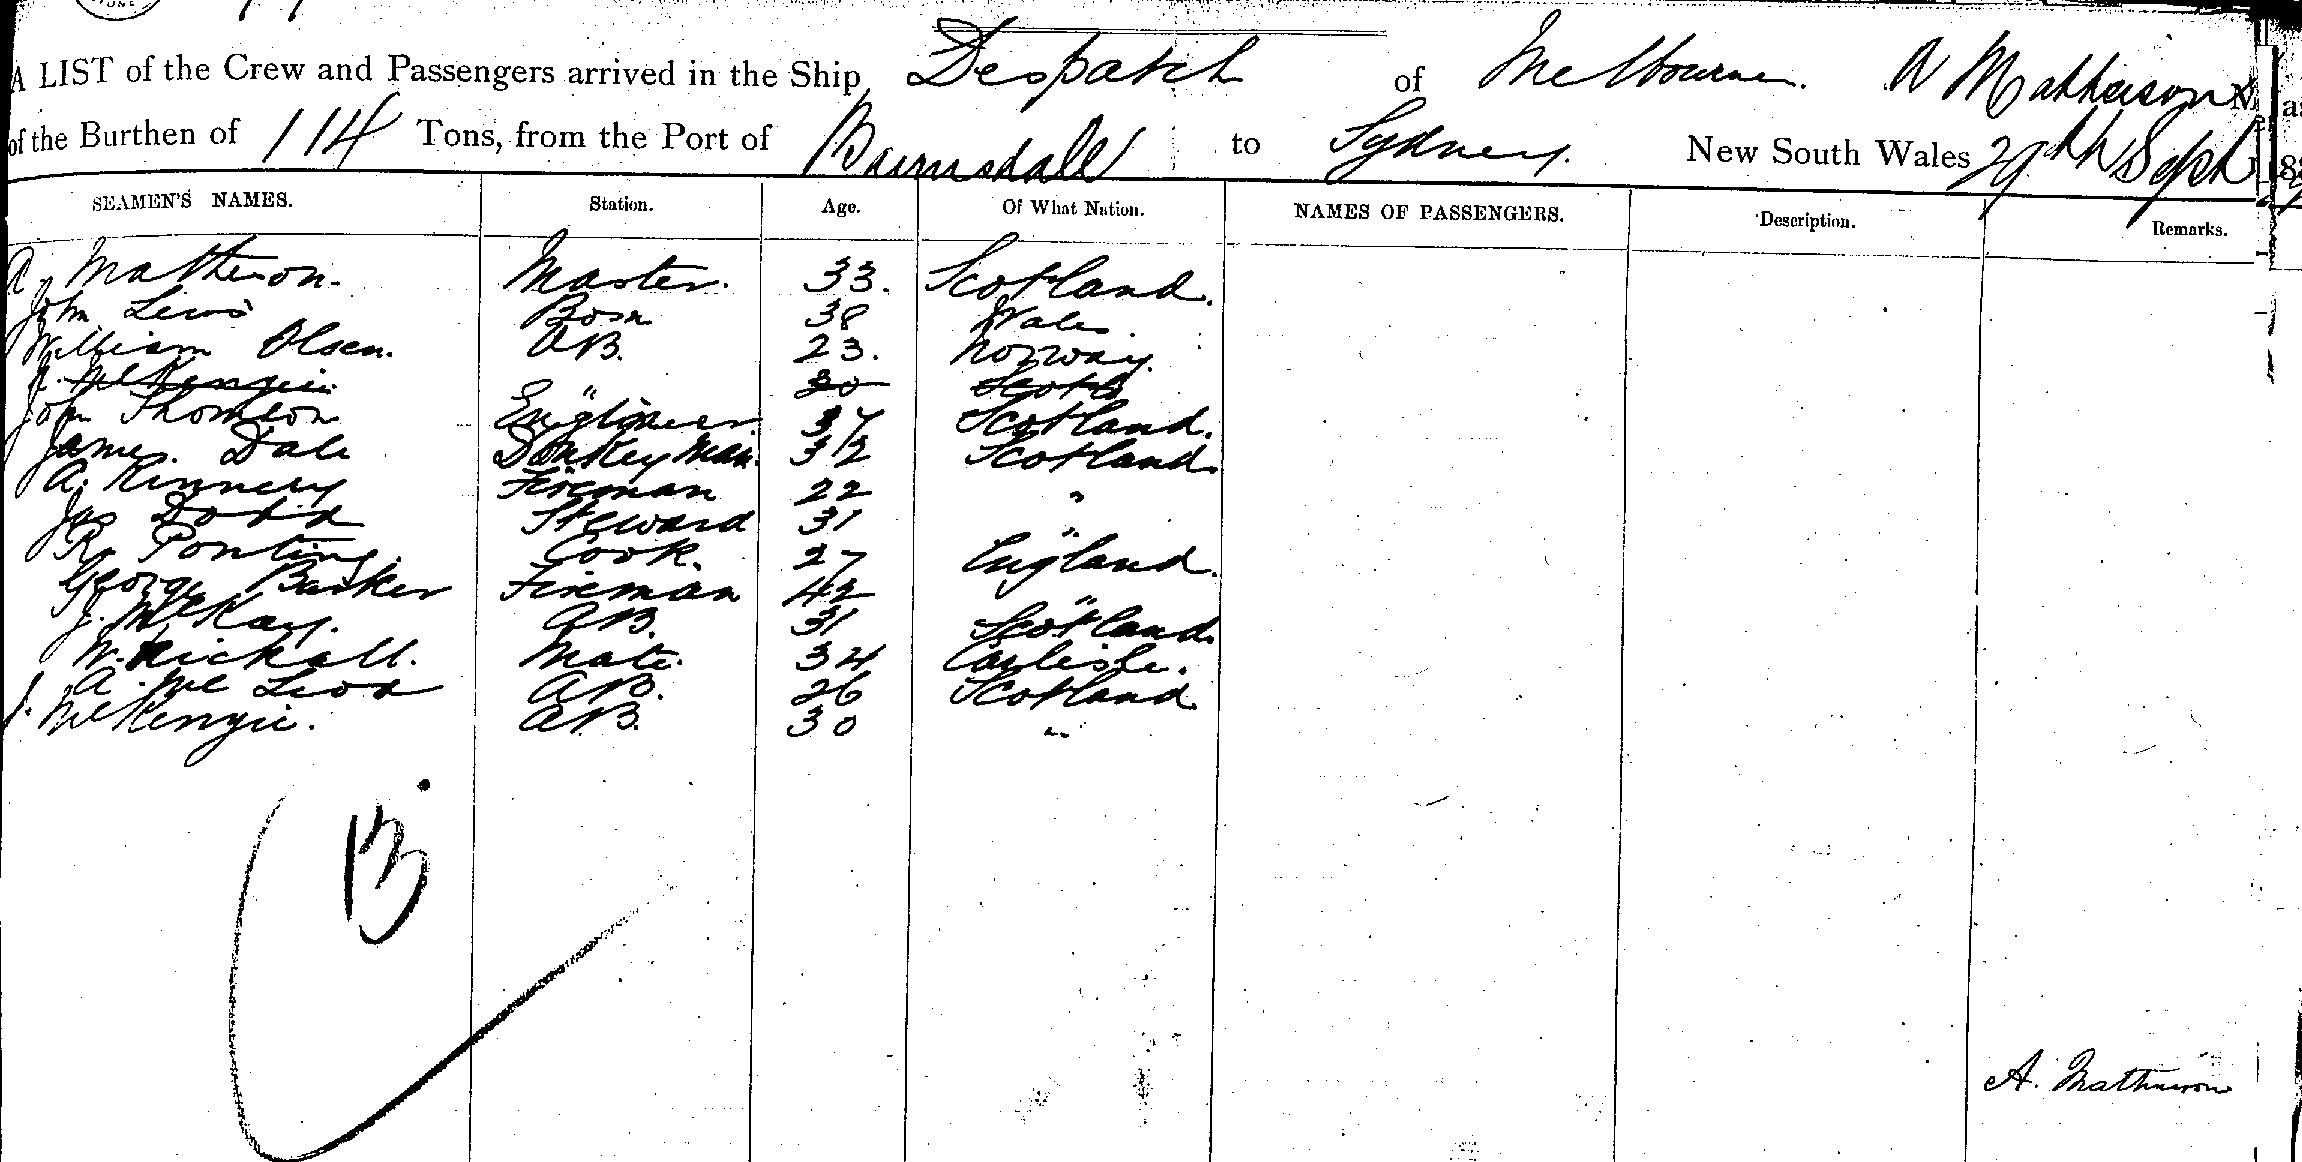 A LIST of the Crew and Passengers arrived in the Ship Despatch of Melbourne A Matheison
of the Burthen of 114 Tons, from the Port of Bairnsdall to Sydney. New South Wales 29th Sept
SEAMEN'S NAMES. Station. Age. Of What Nation. NAMES OF PASSENGERS. Description. Remarks.
A. Matheson. Master. 33. Scotland.
John Lewis Bosn 38 Wales.
William Olsen. AB. 23. Norway.
J. McKenzie " 30 Scotld
John Thomson Engineer 37 Scotland.
James. Dale Donkey Man. 32 Scotland.
A. Kinnery Fireman 22 "
Jas Dodd Steward 31 "
R. Ponting Cook. 27 England.
George Barker Fireman 42 "
J. McKay. AB. 31 Scotland.
W. Nickall. Mate. 34 Carlisle.
A. Mc Leod AB. 26 Scotland
J. McKenzie. AB. 30 "
13
A. Matheson